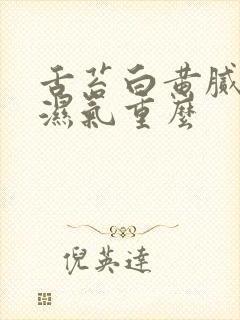 舌苔白黄腻
濕氣重麼
倪英達